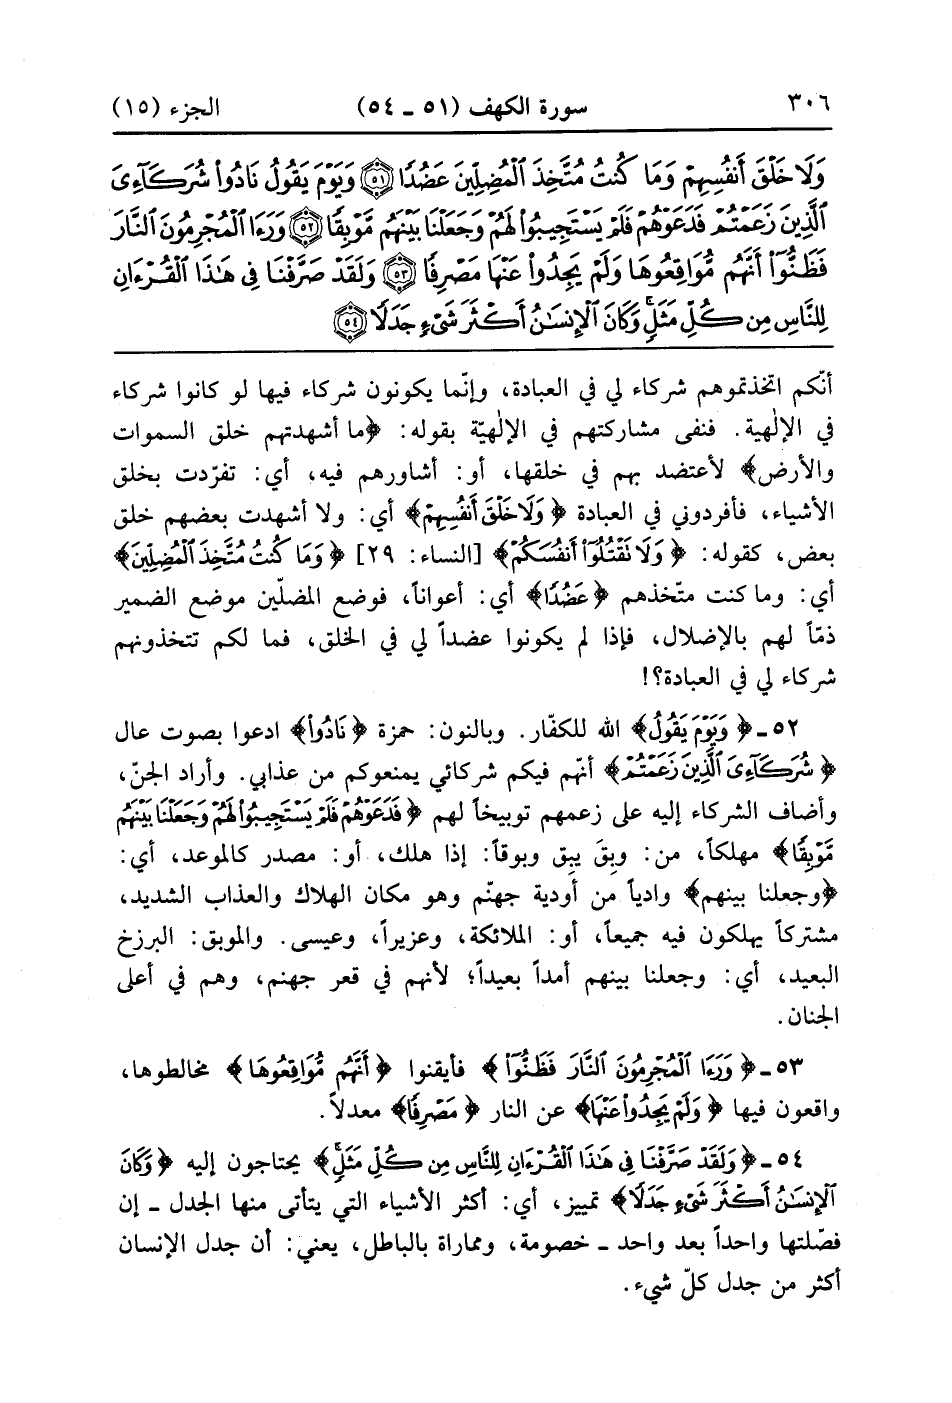 ٣٠٦ سورة الكهف (٥١ ـ ٥٤) الجزء (١٥)
وَلَا خَلْقَ أَنفُسِهِمْ وَمَا كُنتُ مُتَّخِذَ ٱلْمُضِلِّينَ عَضُدًا ﴿٥١﴾ وَيَوْمَ يَقُولُ نَادُوا۟ شُرَكَآءِىَ
ٱلَّذِينَ زَعَمْتُمْ فَدَعَوْهُمْ فَلَمْ يَسْتَجِيبُوا۟ لَهُمْ وَجَعَلْنَا بَيْنَهُم مَّوْبِقًا ﴿٥٢﴾ وَرَءَا ٱلْمُجْرِمُونَ ٱلنَّارَ
فَظَنُّوٓا۟ أَنَّهُم مُّوَاقِعُوهَا وَلَمْ يَجِدُوا۟ عَنْهَا مَصْرِفًا ﴿٥٣﴾ وَلَقَدْ صَرَّفْنَا فِى هَٰذَا ٱلْقُرْءَانِ
لِلنَّاسِ مِن كُلِّ مَثَلٍ ۚ وَكَانَ ٱلْإِنسَٰنُ أَكْثَرَ شَىْءٍ جَدَلًا ﴿٥٤﴾
أنّكم اتخذتموهم شركاء لي في العبادة، وإنّما يكونون شركاء فيها لو كانوا شركاء
في الإلٰهية. فنفى مشاركتهم في الإلٰهيّة بقوله: ﴿ما أشهدتهم خلق السموات
والأرض﴾ لأعتضد بهم في خلقها، أو: أشاورهم فيه، أي: تفرّدت بخلق
الأشياء، فأفردوني في العبادة ﴿وَلَا خَلْقَ أَنفُسِهِمْ﴾ أي: ولا أشهدت بعضهم خلق
بعض، كقوله: ﴿وَلَا تَقْتُلُوٓا۟ أَنفُسَكُمْ﴾ [النساء: ٢٩] ﴿وَمَا كُنتُ مُتَّخِذَ ٱلْمُضِلِّينَ﴾
أي: وما كنت متّخذهم ﴿عَضُدًا﴾ أي: أعواناً، فوضع المضلّين موضع الضمير
ذمّاً لهم بالإضلال، فإذا لم يكونوا عضداً لي في الخلق، فما لكم تتخذونهم
شركاء لي في العبادة؟!
٥٢ ـ ﴿وَيَوْمَ يَقُولُ﴾ الله للكفّار. وبالنون: حمزة ﴿نَادُوا۟﴾ ادعوا بصوت عال
﴿شُرَكَآءِىَ ٱلَّذِينَ زَعَمْتُمْ﴾ أنّهم فيكم شركائي يمنعوكم من عذابي. وأراد الجنّ،
وأضاف الشركاء إليه على زعمهم توبيخاً لهم ﴿فَدَعَوْهُمْ فَلَمْ يَسْتَجِيبُوا۟ لَهُمْ وَجَعَلْنَا بَيْنَهُم
مَّوْبِقًا﴾ مهلكاً، من: وبِقَ يبِق وبوقاً: إذا هلك، أو: مصدر كالموعد، أي:
﴿وجعلنا بينهم﴾ وادياً من أودية جهنّم وهو مكان الهلاك والعذاب الشديد،
مشتركاً يهلكون فيه جميعاً، أو: الملائكة، وعزيراً، وعيسى. والموبق: البرزخ
البعيد، أي: وجعلنا بينهم أمداً بعيداً؛ لأنهم في قعر جهنم، وهم في أعلى
الجنان.
٥٣ ـ ﴿وَرَءَا ٱلْمُجْرِمُونَ ٱلنَّارَ فَظَنُّوٓا۟﴾ فأيقنوا ﴿أَنَّهُم مُّوَاقِعُوهَا﴾ مخالطوها،
واقعون فيها ﴿وَلَمْ يَجِدُوا۟ عَنْهَا﴾ عن النار ﴿مَصْرِفًا﴾ معدلاً.
٥٤ ـ ﴿وَلَقَدْ صَرَّفْنَا فِى هَٰذَا ٱلْقُرْءَانِ لِلنَّاسِ مِن كُلِّ مَثَلٍ ۚ﴾ يحتاجون إليه ﴿وَكَانَ
ٱلْإِنسَٰنُ أَكْثَرَ شَىْءٍ جَدَلًا﴾ تمييز، أي: أكثر الأشياء التي يتأتى منها الجدل ـ إن
فصّلتها واحداً بعد واحد ـ خصومة، ومماراة بالباطل، يعني: أن جدل الإنسان
أكثر من جدل كلّ شيء.